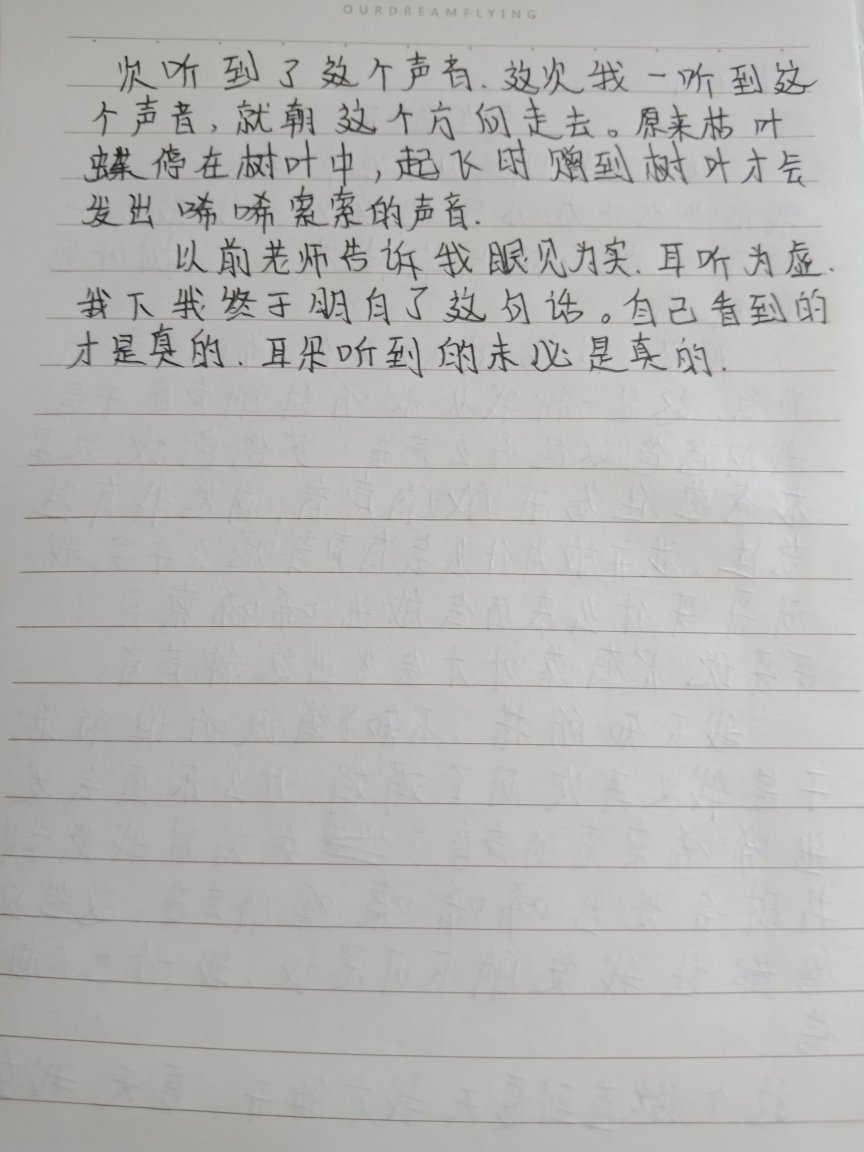 OURDREAMFLYING
次听到了这个声音.这次我一听到这
个声音,就朝这个方向走去。原来枯叶
蝶停在树叶中,起飞时蹭到树叶才会
发出唏唏索索的声音.
以前老师告诉我眼见为实.耳听为虚.
我下我终于明白了这句话。自己看到的
才是真的.耳朵听到的未必是真的.